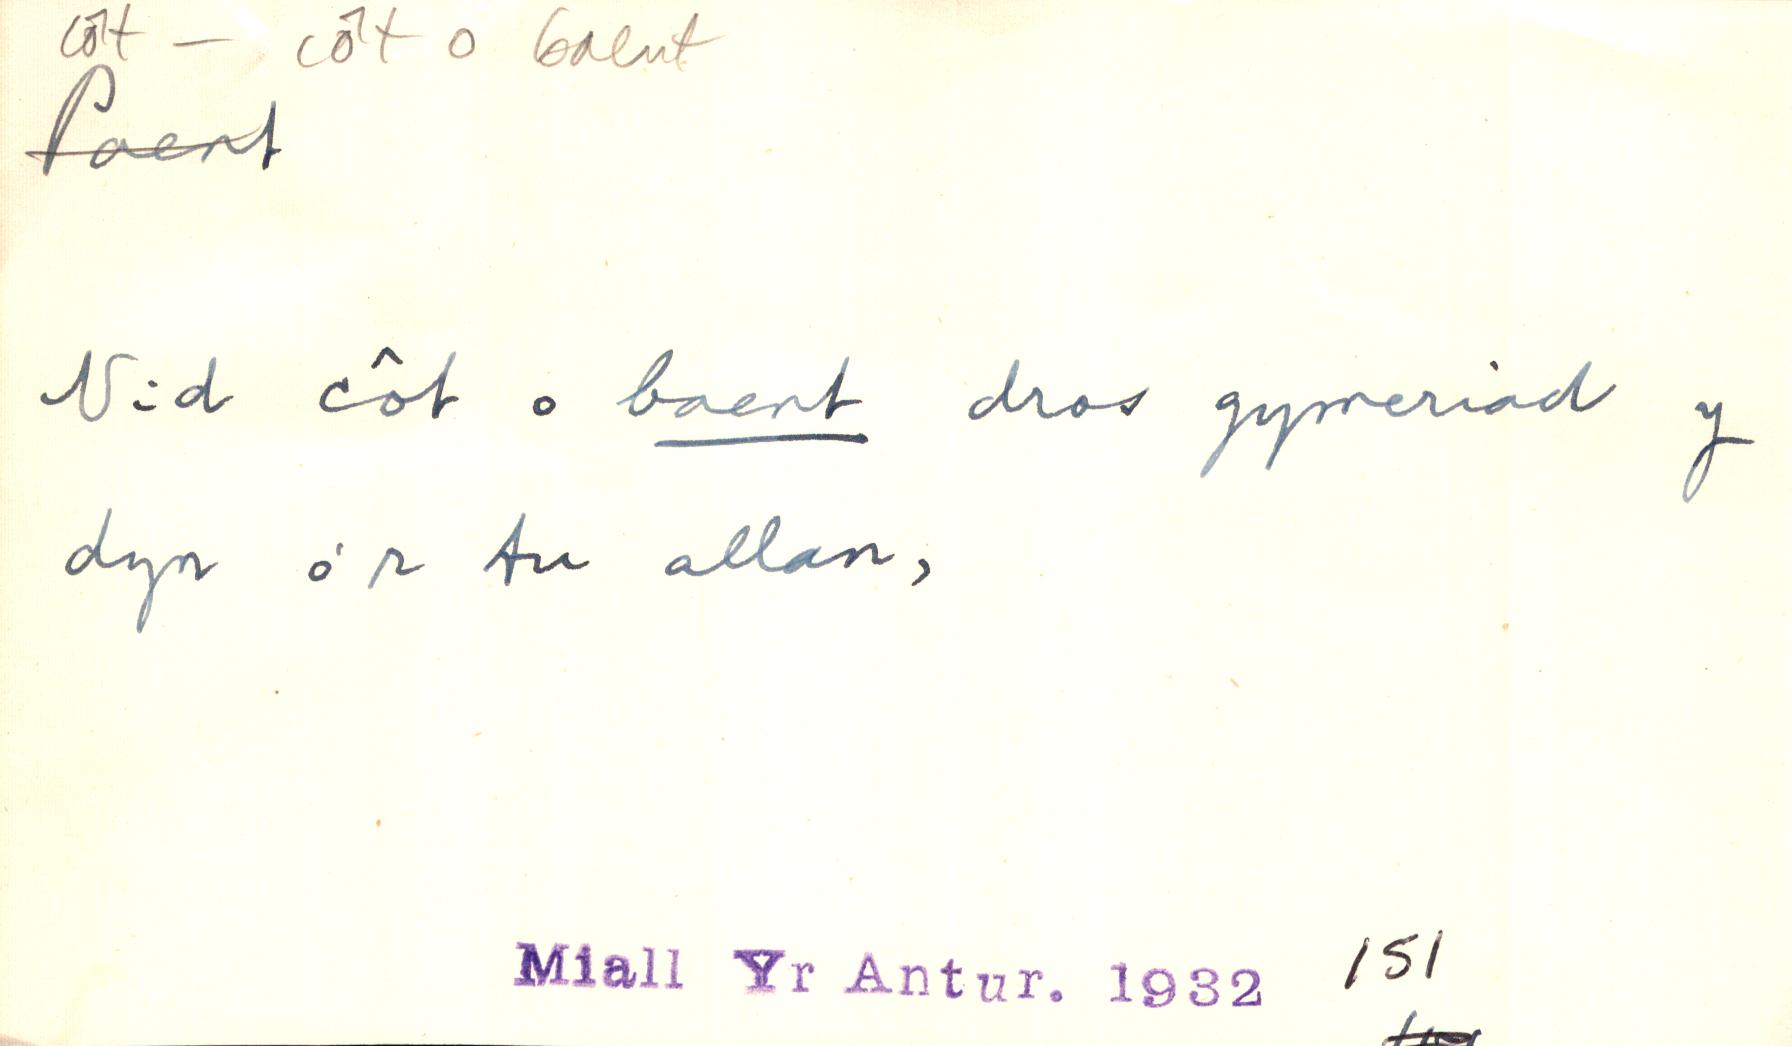 côt — côt o baent
Paent
Nid côt o baent dros gymeriad y
dyn o'r tu allan,
Miall Yr Antur. 1932 151